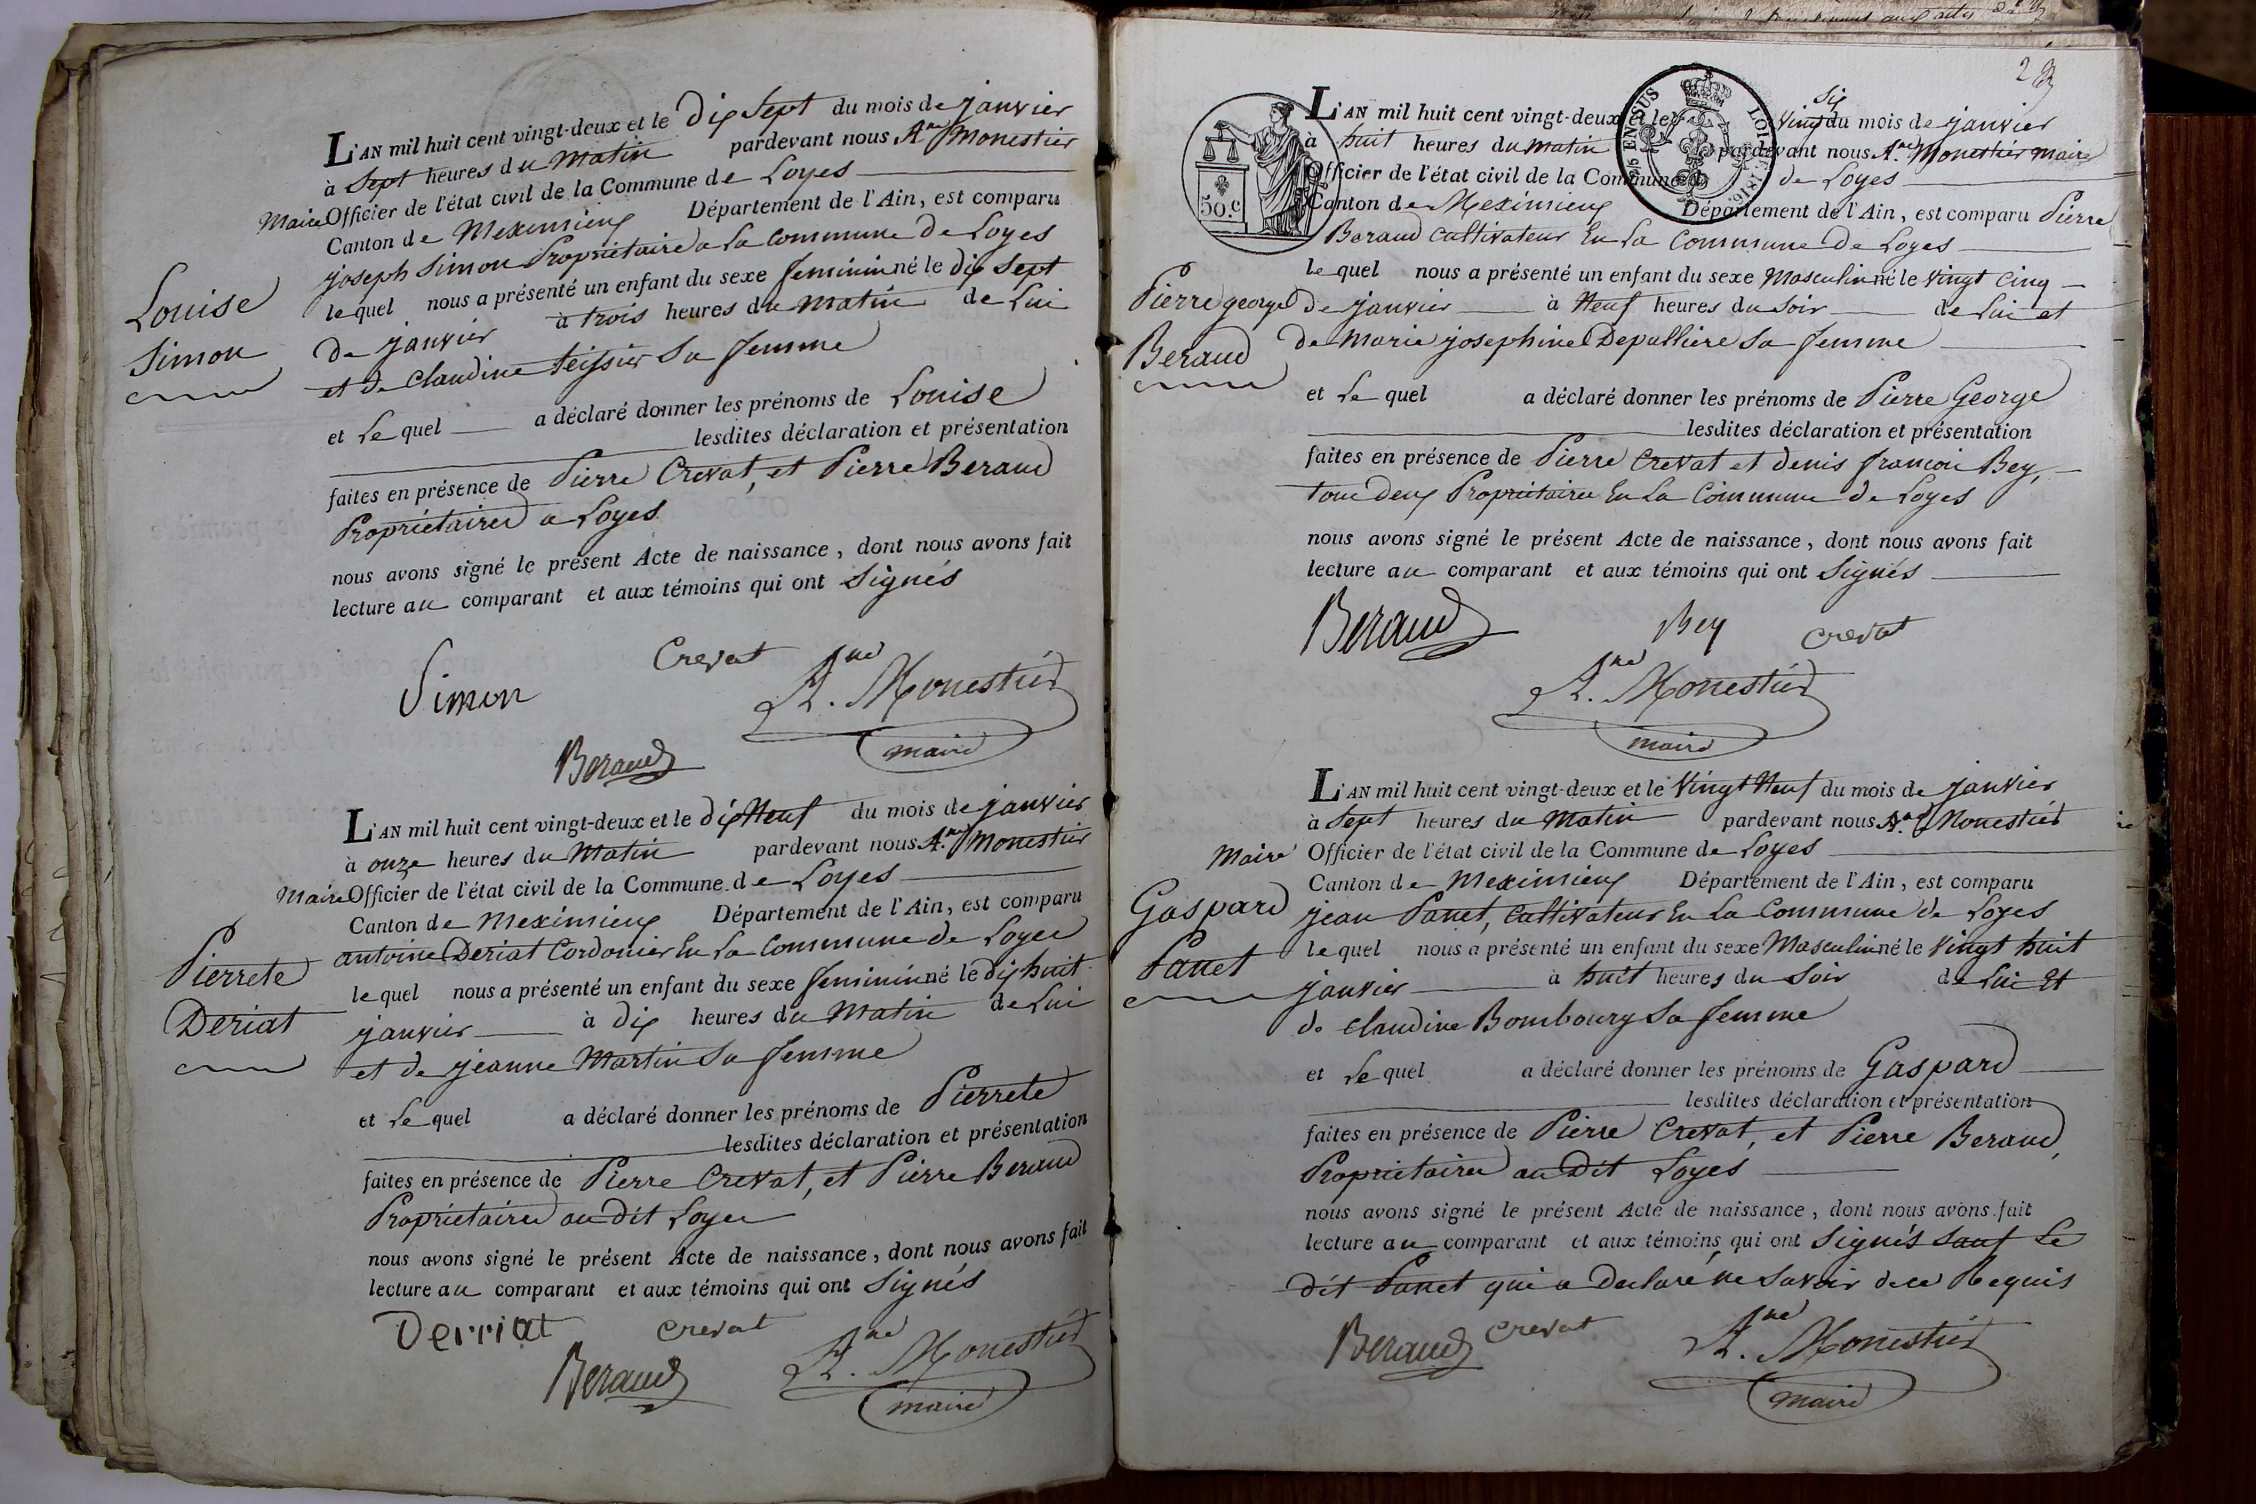 L'AN mil huit cent vingt-deux et le dix Sept du mois de janvier
à Sept heures du Matin pardevant nous A.ne Monestier
Maire Officier de l'état civil de la Commune de Loyes
Canton de Meximieux Département de l'Ain, est comparu
joseph Simon Propriétaire a La Commune de Loyes
le quel nous a présenté un enfant du sexe feminin né le dix Sept
de janvier à trois heures du Matin de Lui
et de Claudine teissier Sa femme
Louise
Simon
et Le quel a déclaré donner les prénoms de Louise
lesdites déclaration et présentation
faites en présence de Pierre Crevat, et Pierre Beraud
Propriétaires a Loyes
nous avons signé le présent Acte de naissance, dont nous avons fait
lecture au comparant et aux témoins qui ont Signés
Simon
Crevat
A.ne Monestier
maire
Beraud
L'AN mil huit cent vingt-deux et le dix Neuf du mois de janvier
à onze heures du Matin pardevant nous A.ne Monestier
Maire Officier de l'état civil de la Commune de Loyes
Canton de Meximieux Département de l'Ain, est comparu
antoine Deriat Cordonier En La Commune de Loyes
le quel nous a présenté un enfant du sexe feminin né le dix huit
janvier à dix heures du Matin de Lui
et de jeanne Martin Sa femme
Pierrete
Deriat
et Le quel a déclaré donner les prénoms de Pierrete
lesdites déclaration et présentation
faites en présence de Pierre Crevat, et Pierre Beraud
Propriétaires au Dit Loyes
nous avons signé le présent Acte de naissance, dont nous avons fait
lecture au comparant et aux témoins qui ont Signés
Derriat
Crevat
Beraud
A.ne Monestier
maire
2
50.c
EN SUS
LOI DE 1816.
L'AN mil huit cent vingt-deux et le vingt Six du mois de janvier
à huit heures du matin pardevant nous A.ne Monestier maire
Officier de l'état civil de la Commune de Loyes
Canton de Meximieux Département de l'Ain, est comparu Pierre
Beraud Cultivateur En La Commune de Loyes
le quel nous a présenté un enfant du sexe Masculin né le vingt cinq
de janvier à Neuf heures du Soir de Lui et
de Marie josephine Depalliere Sa femme
Pierre george
Beraud
et Le quel a déclaré donner les prénoms de Pierre George
lesdites déclaration et présentation
faites en présence de Pierre Crevat et denis françois Bey,
tous deux Propriétaires En La Commune de Loyes
nous avons signé le présent Acte de naissance, dont nous avons fait
lecture au comparant et aux témoins qui ont Signés
Beraud
Bey
Crevat
A.ne Monestier
maire
L'AN mil huit cent vingt-deux et le Vingt Neuf du mois de janvier
à Sept heures du Matin pardevant nous A.ne Monestier
Maire Officier de l'état civil de la Commune de Loyes
Canton de Meximieux Département de l'Ain, est comparu
jean Panet, Cultivateur En La Commune de Loyes
le quel nous a présenté un enfant du sexe Masculin né le Vingt huit
janvier à huit heures du Soir de Lui Et
de Claudine Bomboury Sa femme
Gaspard
Panet
et Le quel a déclaré donner les prénoms de Gaspard
lesdites déclaration et présentation
faites en présence de Pierre Crevat, et Pierre Beraud,
Propriétaires au Dit Loyes
nous avons signé le présent Acte de naissance, dont nous avons fait
lecture au comparant et aux témoins qui ont Signés Sauf Le
dit Panet qui a Declaré ne Savoir de ce Requis
Beraud
Crevat
A.ne Monestier
maire